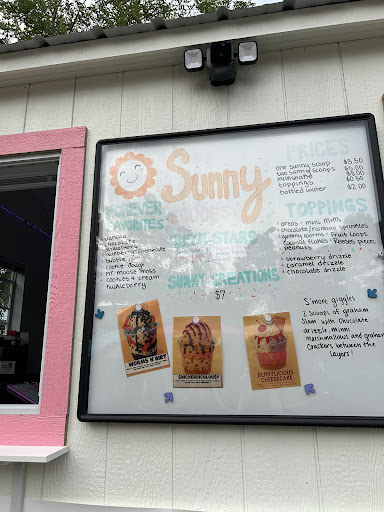 Sunny
SCOOPS
PRICES
one sunny scoop $3.50
two sunny scoops $5.00
milkshake
toppings $0.50
bottled water $2.00
FOREVER
FAVORITES
vanilla
chocolate
strawberry
cookie dough
MT moose moss
cookies & cream
huckleberry
SUNNY CREATIONS
$7
TOPPINGS
oreos - mini M&Ms
chocolate/rainbow sprinkles
gummy worms - fruit loops
coconut flakes - Reeses pieces
peanuts
- strawberry drizzle
- caramel drizzle
- chocolate drizzle
S'more giggles
2 scoops of graham
slam with chocolate
drizzle, mini
marshmallows and graham
crackers between the
layers!
WORMS N DIRT
SNICKERDICULOUS!
BERRYLICIOUS
CHEESECAKE